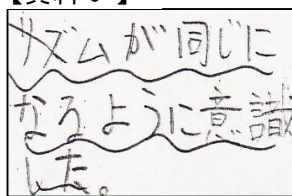 リズムが同じに
なるように意識
した。